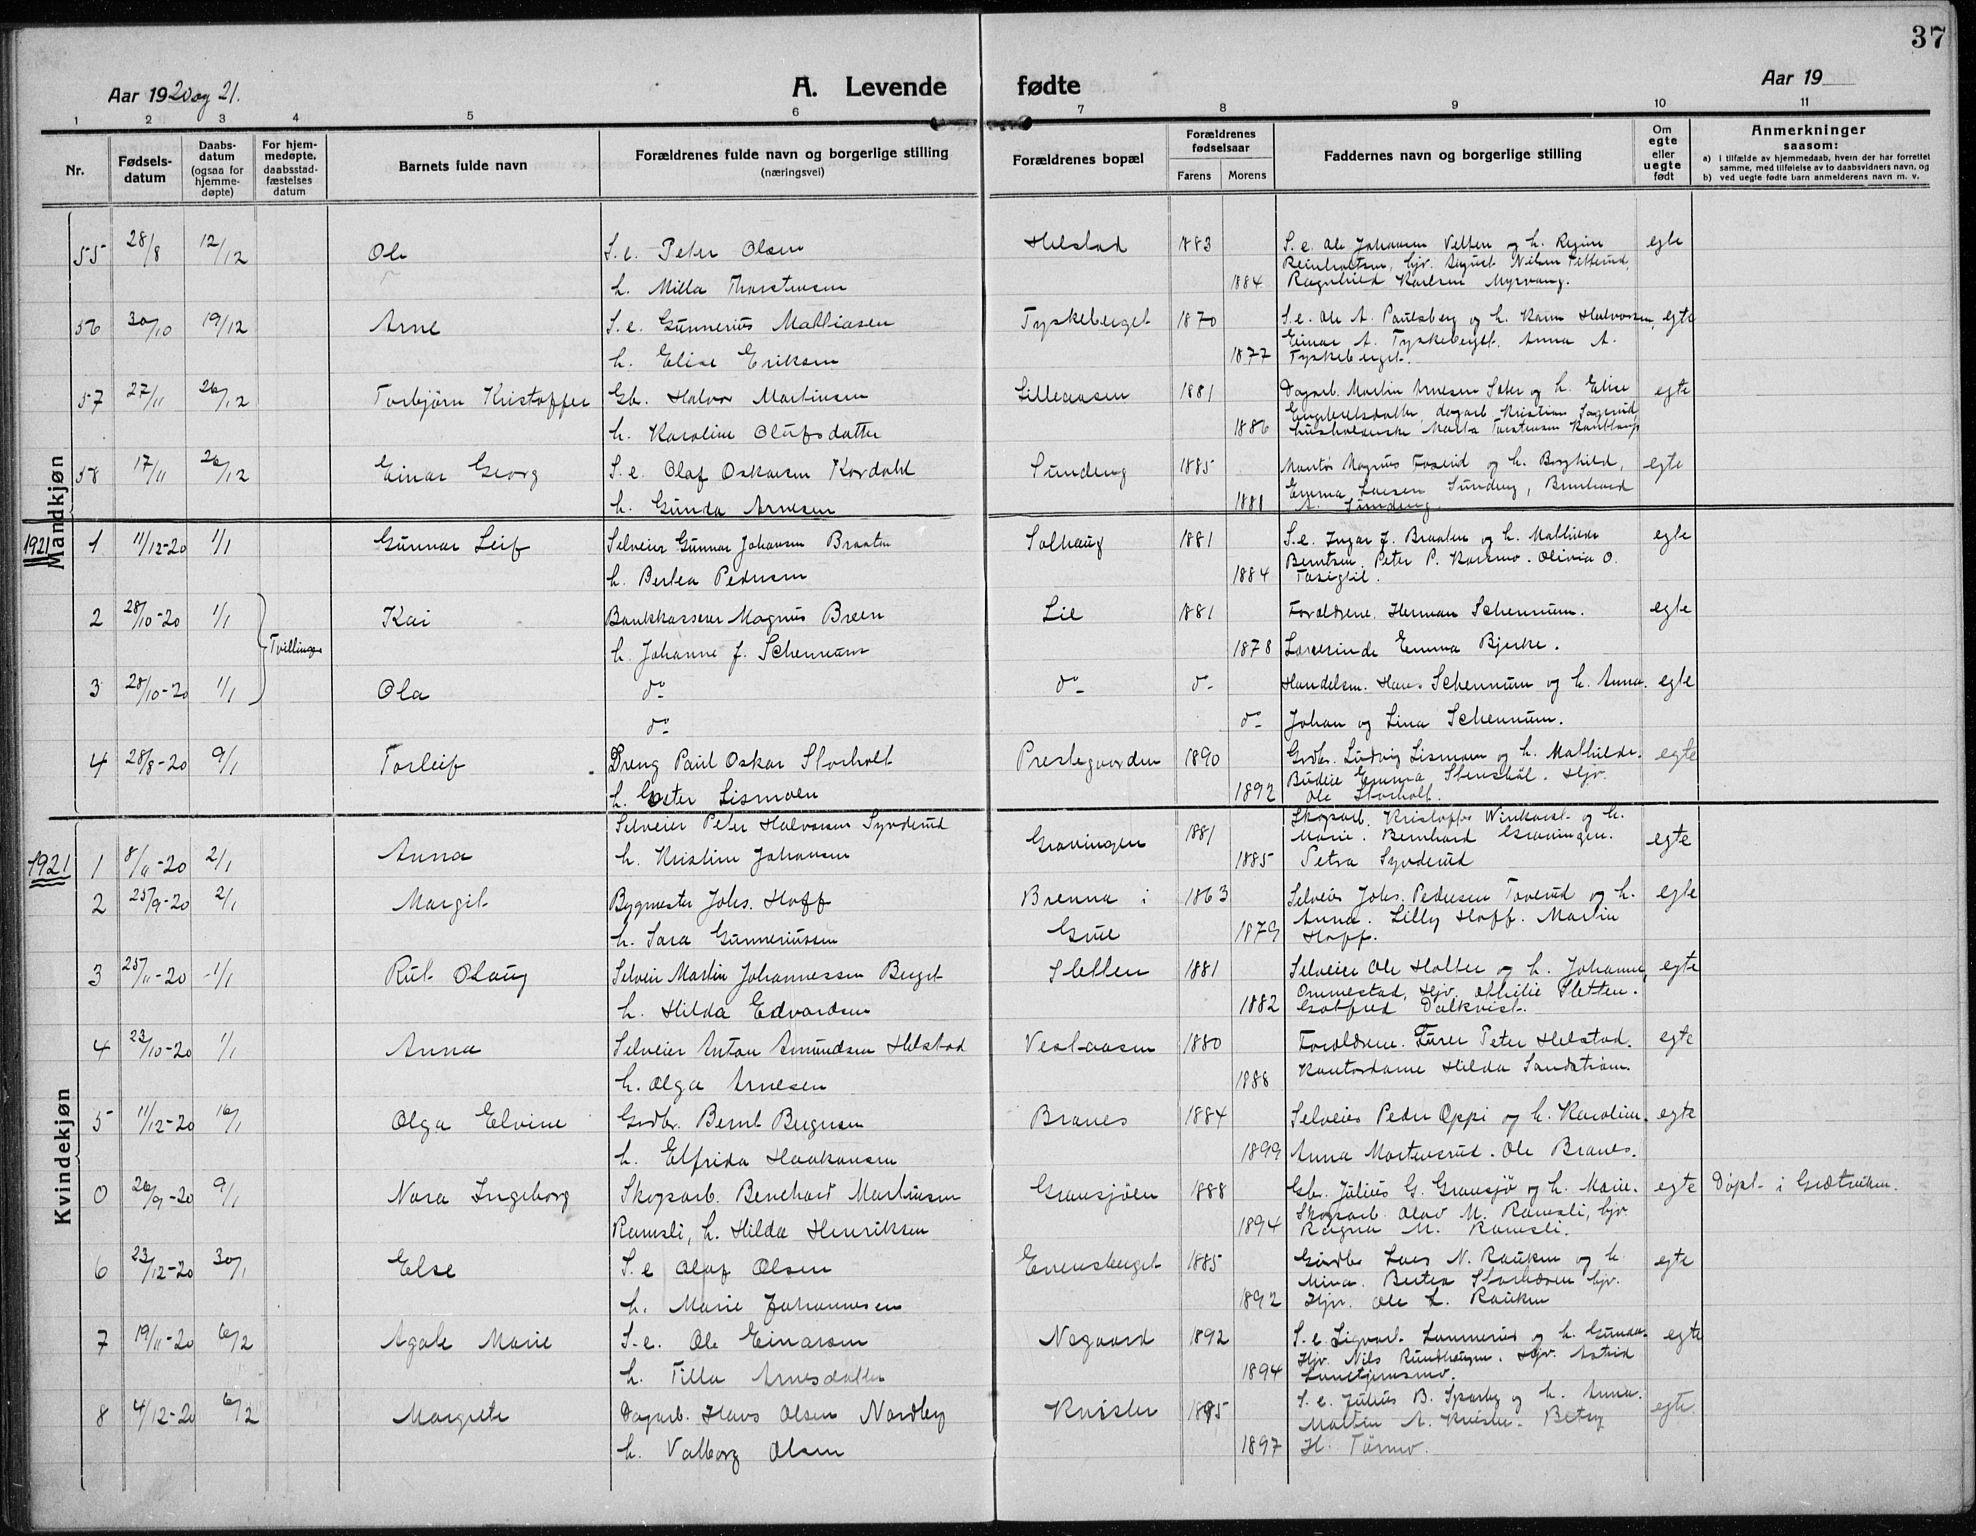 37
Aar 1920 og 21.
A. Levende fødte
Aar 19
1 2 3 4 5 6 7 8 9 10 11
Nr.
Fødsels-
datum
Daabs-
datum
(ogsaa for
hjemme-
døpte)
For hjem-
medøpte,
daabsstad-
fæstelses
datum
Barnets fulde navn
Forældrenes fulde navn og borgerlige stilling
(næringsvei)
Forældrenes bopæl
Forældrenes
fødselsaar
Farens Morens
Faddernes navn og borgerlige stilling
Om
egte
eller
uegte
født
Anmerkninger
saasom:
a) i tilfælde av hjemmedaab, hvem der har forrettet
samme, med tilføielse av to daabsvidners navn, og
b) ved uegte fødte barn anmelderens navn m. v.
Mandkjøn
55 28/8 12/12 Ole S. e. Peter Olsen Helstad 1883 S. e. Ole Johansen Velten og h. Regine egte
Reinholtsen, hjv. August Nilsen
h. Milla Thorstensen 1884 Ragnhild Karlsen Myrvang.
56 30/10 19/12 Arne S. e. Gunnerius Mathiasen Tyskeberget 1870 S. e. Ole A. Paulsberg og h. Karen Halvorsen, egte
Einar A. Tyskeberget. Anna A.
h. Elise Eriksen 1877 Tyskeberget.
57 27/11 26/12 Torbjørn Kristoffer Gb. Halvor Martinsen Lilleaasen 1881 Dagarb. Martin Arnesen Sæter og h. Elise egte
Engebretsdatter, dagarb. Kristian
h. Karoline Olufsdatter 1886 Marta Torstensen
58 17/11 26/12 Einar Georg S. e. Olaf Oskarsen Kordahl Sundeng 1885 Magnus og h. Borghild, egte
Emma Larsen Sundeng, Bernhard
h. Gunda Arnesen 1888 A. Sundeng.
1921
1 11/12-20 1/1 Gunnar Leif Selveier Gunnar Johansen Braaten Solhaug 1881 S. e. Ingar J. Braaten og h. Mathilde egte
Berntsen. Peter P. Karsmo. Olivia O.
h. Bertea Pedersen 1884
2 28/10-20 1/1 Kai Bankkasserer Magnus Breen Lie 1881 Forældrene. Herman Schennum. egte
Tvillinger
h. Johanne J. Schennum 1878 Lærerinde Emma Bjerke.
3 28/10-20 1/1 Ola do do do Handelsm. Hans Schennum og h. Anna. egte
do do Johan og Lina Schennum.
4 28/8-20 9/1 Torleif Dreng Paul Oskar Storholt Prestegaarden 1890 Grdbr. Ludvig Lismoen og h. Mathilde. egte
Budeie Emma Stenshøl. Hjv.
h. Lismoen 1892 Ole Storholt.
Kvindekjøn
1921
Selveier Peter Halvorsen Synderud Skogsarb. Kristoffer og h.
1 8/11-20 2/1 Anna Gravingen 1881 Marie. Bernhard Gravingen. egte
h. Kristine Johansen 1885 Petra Synderud
2 25/9-20 2/1 Margit Bygmester Johs. Hoff Brenna i 1863 Selveier Johs. Pedersen Toverud og h. egte
Anna. Lilly Hoff. Martin
h. Sara Gunneriussen Grue 1879 Hoff.
3 25/11-20 1/1 Rut Olaug Selveier Martin Johannessen Berget Sletten 1881 Selveier Ole Holter og h. Johanne, egte
Ommestad, Hjv. Othilie Sletten.
h. Hilda Edvardsen 1882 Gotfred Dalkvist.
4 23/10-20 1/1 Anna Selveier Anton Amundsen Helstad Vestaasen 1880 Forældrene. Furer Peter Helstad. egte
h. Olga Arnesen 1888 Kontordame Hilda Sandstrøm.
5 11/12-20 16/1 Olga Elvine Grdbr. Bernt Bergersen Branes 1884 Selveier Peder Oppi og h. Karoline. egte
h. Elfrida Haakonsen 1899 Anna Mortensrud. Ole Branes.
0 26/9-20 9/1 Nora Ingeborg Skogsarb. Bernhard Martinsen Gransjøen 1888 Gb. Julius G. Gransjø og h. Marie. egte Døpt i Grætviken.
Skogsarb. Olav M. Ramsli, hjv.
Ramsli, h. Hilda Henriksen 1894 Ragna M. Ramsli.
6 23/12-20 30/1 Else S. e. Olaf Olsen Evensberget 1885 Gaardbr. Lars N. Rauken og h. egte
Mina. Bertea Storberen hjv.
h. Marie Johannesen 1892 Hjv. Ole L. Rauken
7 19/11-20 6/2 Agate Marie S. e. Ole Einarsen Nøgaard 1892 S. e. Sigvart Lunnerud og h. Gunda. egte
Hjv. Nils Rundhaugen. Hjv. Astrid
h. Tilla Arnesdatter 1894
8 4/12-20 6/2 Margrete Dagarb. Hans Olsen Nordby Kvisler 1895 S. e. Julius B. Sparby og h. Anna. egte
Martin A. Kvisler. Betsy
h. Valborg Olsen 1897 H. Tørmo.